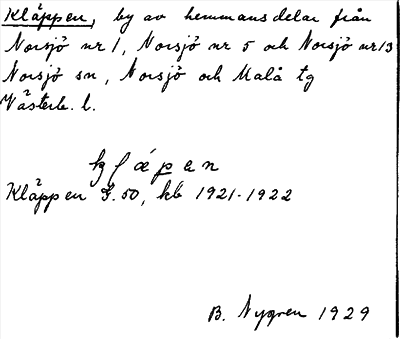 Kläppen, by av hemmansdelar från
Norsjö nr 1, Norsjö nr 5 och Norsjö nr 13
Norsjö sn, Norsjö och Malå tg
Västerb. l.
Kläppen F.50, kb 1921-1922
B. Nygren 1929